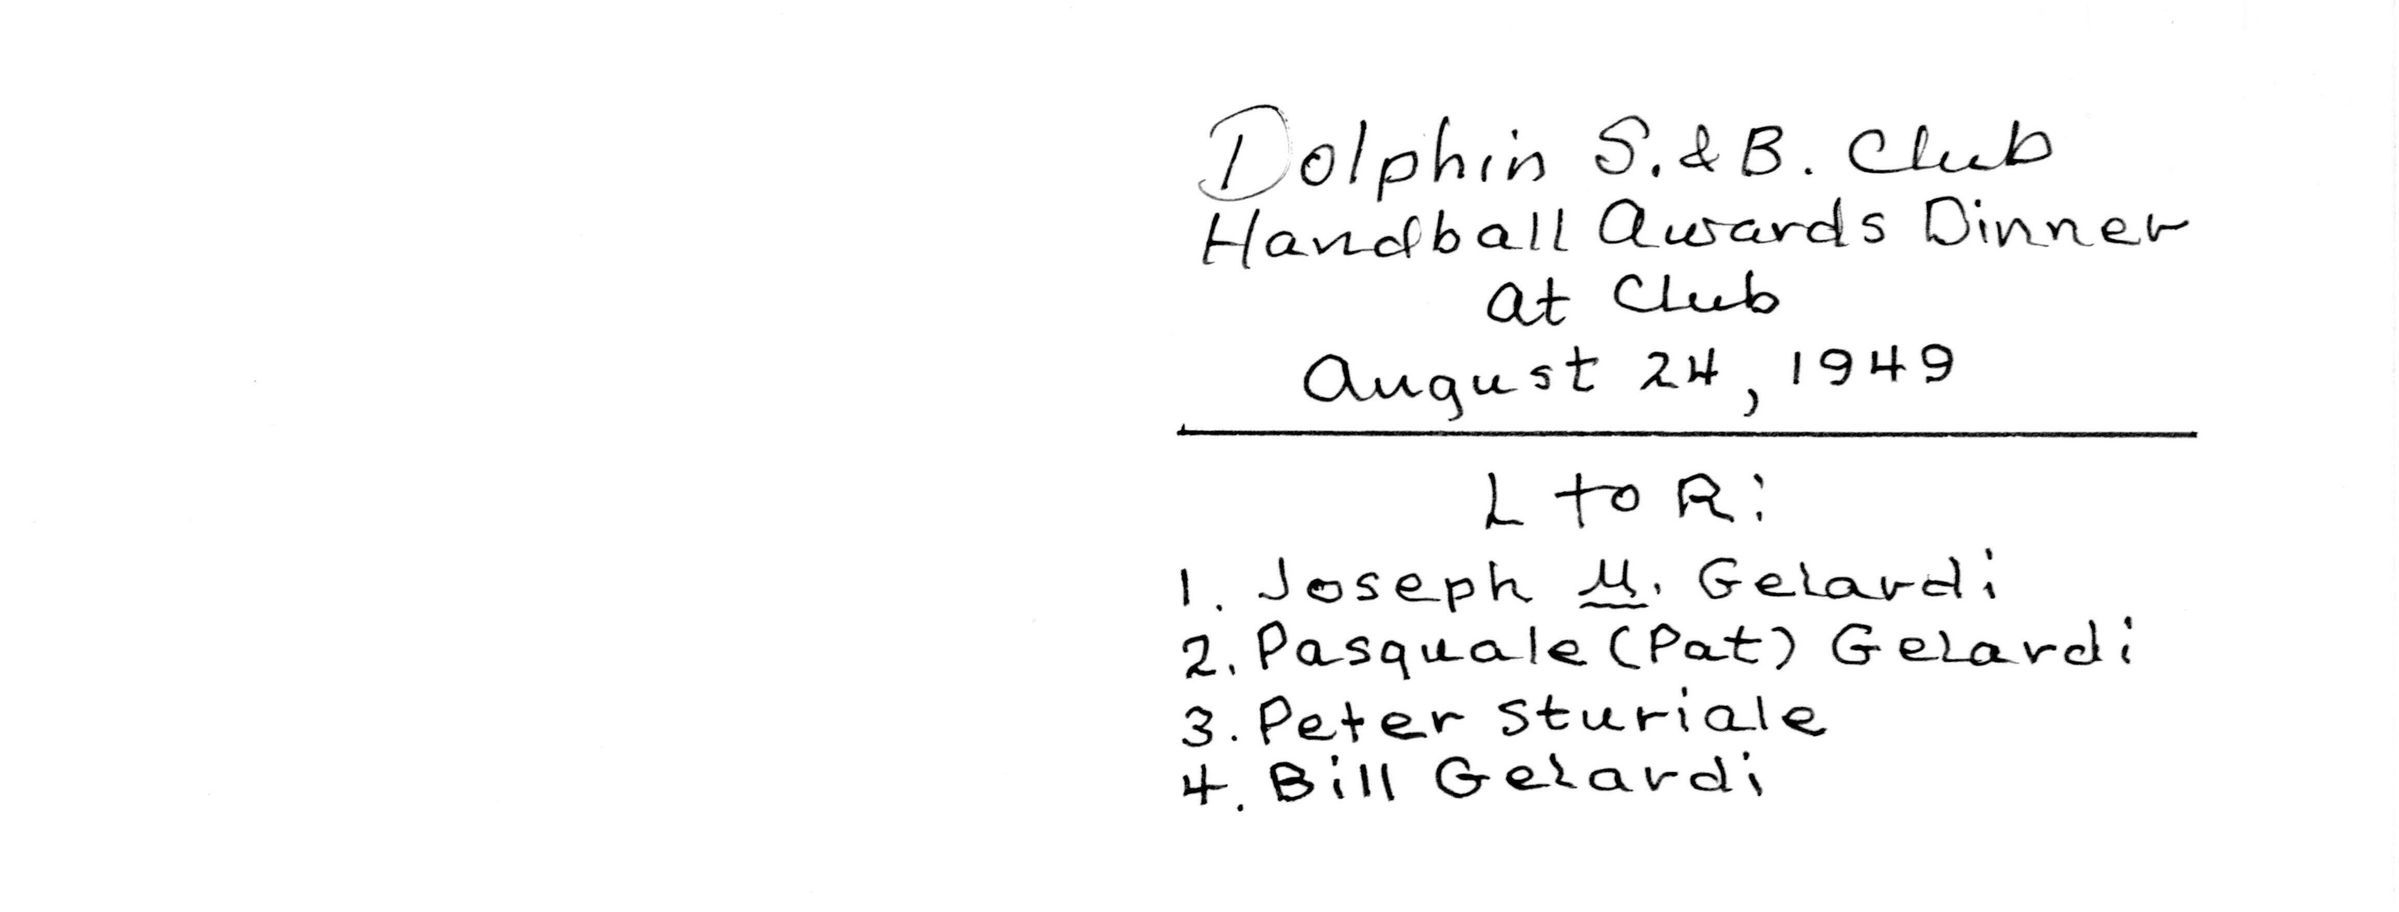 Dolphin S. & B. Club
Handball Awards Dinner
at Club
August 24, 1949
L to R:
1. Joseph M. Gelardi
2. Pasquale (Pat) Gelardi
3. Peter Sturiale
4. Bill Gelardi